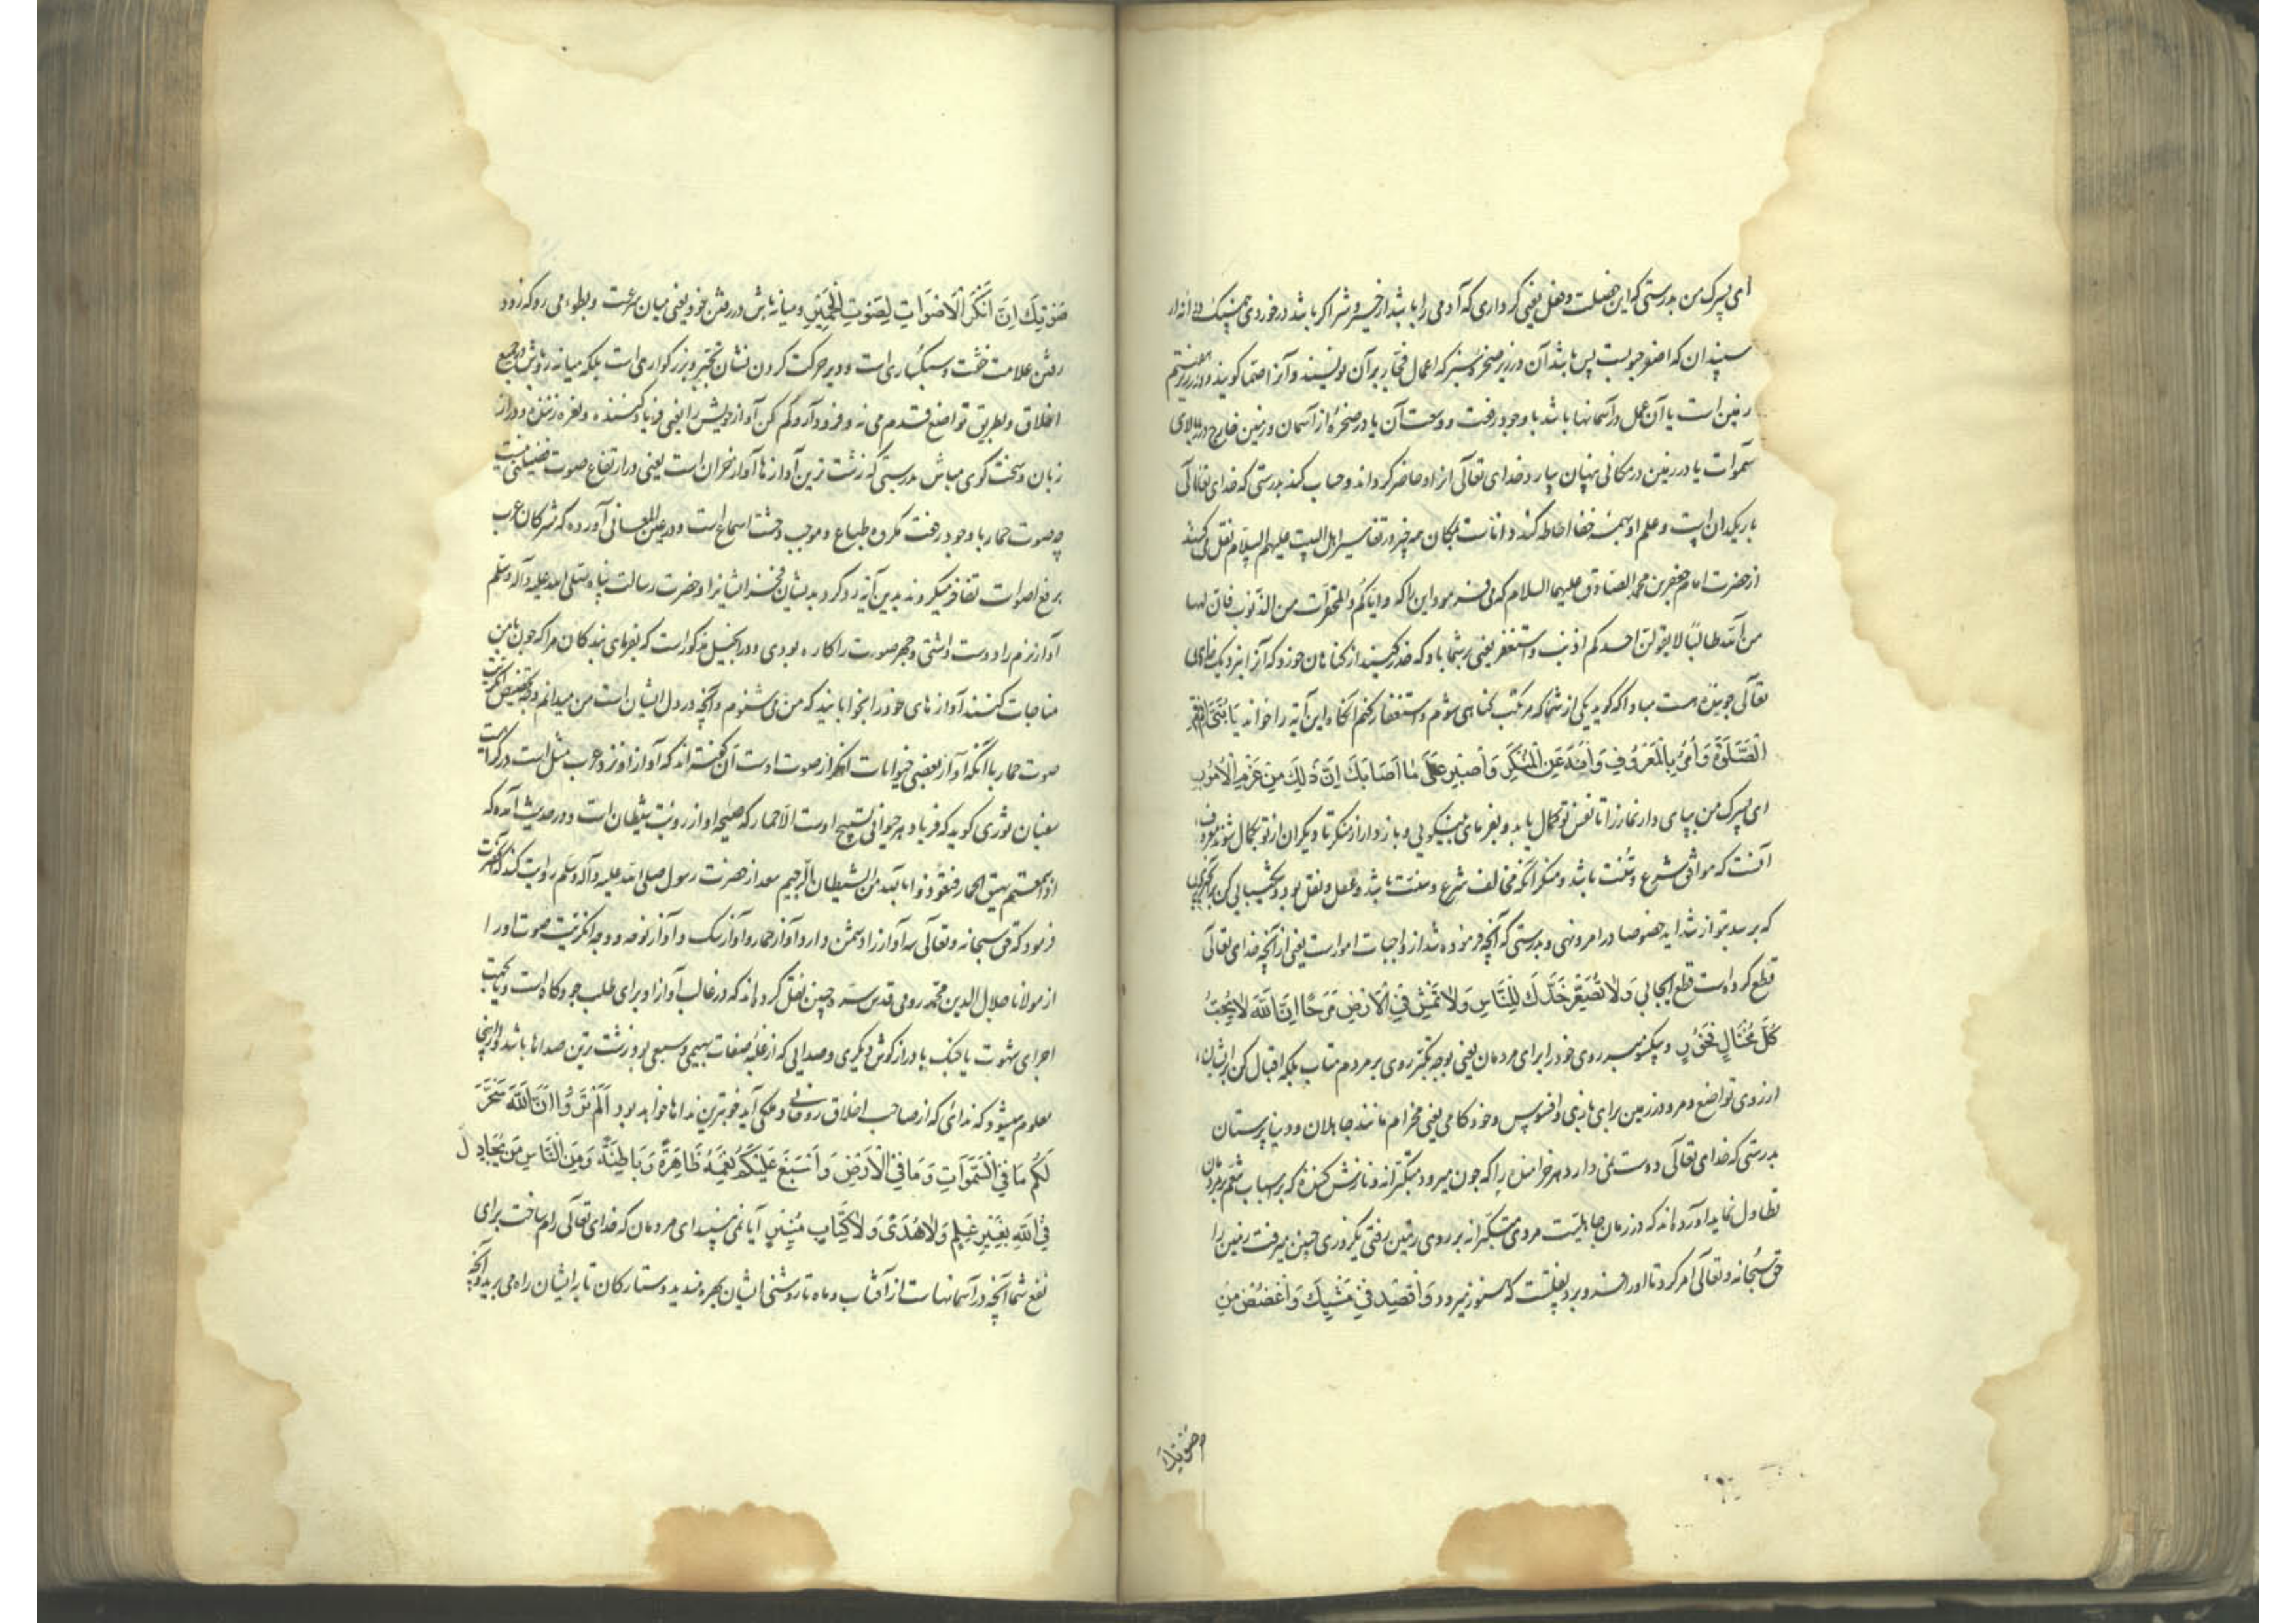 ای پسرک من بدرستی که این خصلت و فعل یعنی کرداری که آدمی را باشد از خیر و شر اگر باشد در خوردی همسنگ دانه از
سپندان که اصغر حبوبست پس باشد آن در زیر صخره سبز که اعمال فجار بر آن نویسند و آنرا صما کویند و در زیر زمین هفتم
زمین است یا آن عمل در آسمانها باشد با وجود رفعت و وسعت آن یا در صخره از آسمان و زمین خارج در بالای
سموات یا در زمین در مکانی پنهان بیارد خدای تعالی انرا و حاضر کرداند و حساب کند بدرستی که خدای تعالی
باریکدان است و علم او بهمه خفا احاطه کند دانا است بمکان هر چیز در تفاسیر اهل البیت علیهم السلام نقل می کنند
از حضرت امام جعفر بن محمد الصادق علیهما السلام که می فرمود این را که و ایاکم و المحقرات من الذنوب فان لها
من الله طالبا لا یقولن احدکم اذنب و استغفر یعنی بر شما باد که حذر کنید از کناهان خورد که آنرا نزدیک خدای
تعالی جوینده هست مبادا که کوید یکی از شما که مرتکب کناهی شوم و استغفار کنم انکاه این آیه را خواند یَا بُنَیَّ اَقِمِ
الصَّلٰوةَ وَأْمُرْ بِالْمَعْرُوفِ وَانْهَ عَنِ الْمُنْكَرِ وَاصْبِرْ عَلٰى مَا اَصَابَكَ اِنَّ ذٰلِكَ مِنْ عَزْمِ الْاُمُورِ
ای پسرک من بپای دار نماز را تا نفس تو کمال یابد و بفرمای بنیکویی و باز دار از منکر تا دیکران از تو بکمال شوند معروف
آنست که موافق شرع و سنت باشد و منکر آنکه مخالف شرع و سنت باشد و عقل و نقل بود و شکیبایی کن بر انچیزی
که برسد بتو از شداید خصوصا در امر و نهی و بدرستی که آنچه فرموده شد از واجبات امور است یعنی از آنچه خدای تعالی
قطع کرده است قطع ایجابی وَلَا تُصَعِّرْ خَدَّكَ لِلنَّاسِ وَلَا تَمْشِ فِی الْاَرْضِ مَرَحًا اِنَّ اللّٰهَ لَا یُحِبُّ
كُلَّ مُخْتَالٍ فَخُورٍ و یکسو مبر روی خود را برای مردمان یعنی بوجه تکبر روی بر مردم متاب بلکه اقبال کن بر ایشان
از روی تواضع و مرو در زمین برای بازی و افسوس و خودکامی یعنی مخرام مانند جاهلان و دنیا پرستان
بدرستی که خدای تعالی دوست نمی دارد هر خرامنده را که چون میرود متکبرانه و نازش کننده که بر اسباب تنعم بر مردمان
تطاول نماید آورده اند که در زمان جاهلیت مردی متکبرانه بر روی زمین رفتی یکروزی چنین میرفت زمین را
حق سبحانه و تعالی امر کرد تا او را فرو برد بغفلت که هنوز میرود وَاقْصِدْ فِی مَشْیِكَ وَاغْضُضْ مِنْ
صَوْتِكَ
صَوْتِكَ اِنَّ اَنْكَرَ الْاَصْوَاتِ لَصَوْتُ الْحَمِیرِ و میانه باش در رفتن خود یعنی میان سرعت و بطوء می رو که زود
رفتن علامت خفت و سبکباری است و دیر حرکت کردن نشان تجبر و بزرکواری است بلکه میانه رو باش در جمیع
اخلاق و بطریق تواضع قدم می نه و فرود آر و کم کن آواز خویش را یعنی فریاد کننده و نعره زننده و دراز
زبان و سخت کوی مباش بدرستی که زشت ترین آوازها آواز خران است یعنی در ارتفاع صوت فضیلتی نیست
چه صوت حمار با وجود رفعت مکروه طباع و موجب وحشت اسماع است و در عین المعانی آورده که مشرکان عرب
برفع اصوات تفاخر میکردند بدین آیه رد کرد بدیشان فخر ایشانرا و حضرت رسالت پناه صلی الله علیه و آله و سلم
آواز نرم را دوست داشتی و جهر صورت را کاره بودی و در انجیل مذکور است که بفرمای بندکان مرا که چون با من
مناجات کنند آوازهای خود را بخوابانید که من می شنوم و آنچه در دل ایشان است من میدانم و وجه تخصیص انکریت
صوت حمار با آنکه آواز بعضی حیوانات انکر از صوت اوست آن کفته اند که آواز او نزد عرب مثل است در کراهت
سفیان ثوری کوید که فریاد هر حیوانی تسبیح اوست الا حمار که صیحه او از رؤیت شیطان است و در حدیث آمده که
اذا سمعتم نهیق الحمار فتعوذوا بالله من الشیطان الرجیم سعد از حضرت رسول صلی الله علیه و آله و سلم روایت کند که آنحضرت
فرمود که حق سبحانه و تعالی سه آواز را دشمن دارد آواز حمار و آواز سک و آواز نوحه و وجه انکریت صوت او را
از مولانا جلال الدین محمد رومی قدس سره چنین نقل کرده اند که در غالب آواز او برای طلب جو و کاه است و یا بجهت
اجرای شهوت یا جنک با دراز کوش دیکری و صدایی که از غلبه صفات بهیمی و سبعی بود زشت ترین صداها باشد و از اینجا
معلوم میشود که ندائی که از صاحب اخلاق روحانی و ملکی آید خوبترین نداها خواهد بود اَلَمْ تَرَوْا اَنَّ اللّٰهَ سَخَّرَ
لَكُمْ مَا فِی السَّمٰوَاتِ وَمَا فِی الْاَرْضِ وَاَسْبَغَ عَلَیْكُمْ نِعَمَهُ ظَاهِرَةً وَبَاطِنَةً وَمِنَ النَّاسِ مَنْ یُجَادِلُ
فِی اللّٰهِ بِغَیْرِ عِلْمٍ وَلَا هُدًى وَلَا كِتَابٍ مُنِیرٍ آیا نمی بینید ای مردمان که خدای تعالی رام ساخت برای
نفع شما آنچه در آسمانها است از آفتاب و ماه تا روشنی ایشان بهره مندید و ستارکان تا به ایشان راه می برید و آنچه